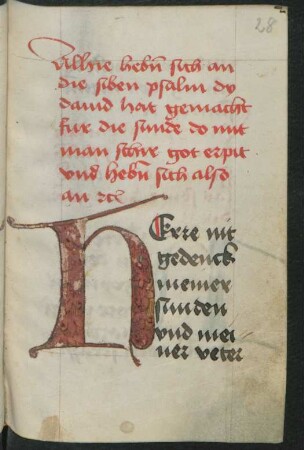 28
Alhie hebn̄ sich an
die siben psalm dy
dauid hat gemacht
fur die sunde do mit
man schir got erpit
vnd hebn̄ sich also
an ꝛc̄
HErre nit
gedenck
meiner
sunden
vnd mei
ner veter